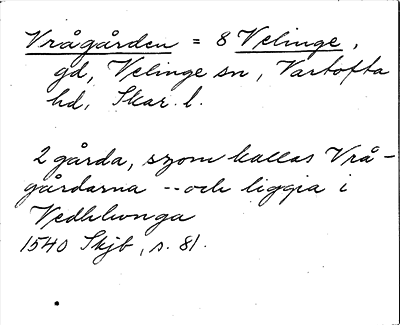 Vrågården = 8 Velinge,
gd, Velinge sn, Vartofta
hd, Skar. l.
2 gårda, szom kallas Vrå-
gårdarna -- och liggia i
Vedhlunga
1540 Skjb, s. 81.